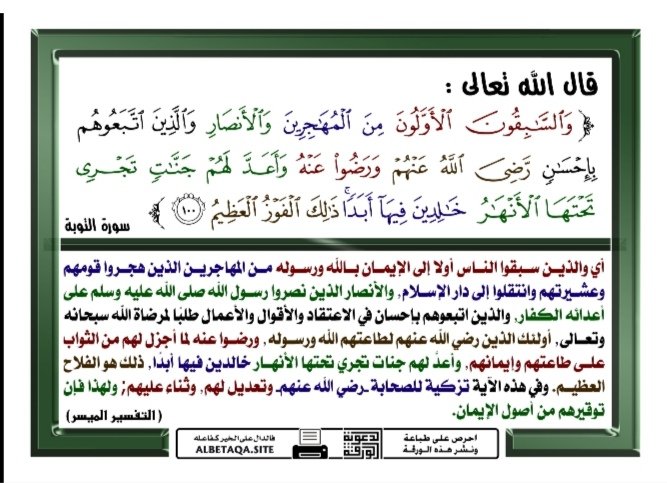 قال الله تعالى :
﴿ وَٱلسَّٰبِقُونَ ٱلْأَوَّلُونَ مِنَ ٱلْمُهَٰجِرِينَ وَٱلْأَنصَارِ وَٱلَّذِينَ ٱتَّبَعُوهُم
بِإِحْسَٰنٍ رَّضِىَ ٱللَّهُ عَنْهُمْ وَرَضُوا۟ عَنْهُ وَأَعَدَّ لَهُمْ جَنَّٰتٍ تَجْرِى
تَحْتَهَا ٱلْأَنْهَٰرُ خَٰلِدِينَ فِيهَآ أَبَدًاۚ ذَٰلِكَ ٱلْفَوْزُ ٱلْعَظِيمُ ١٠٠ ﴾
سورة التوبة
أي والذين سبقوا الناس أولا إلى الإيمان بالله ورسوله من المهاجرين الذين هجروا قومهم
وعشيرتهم وانتقلوا إلى دار الإسلام, والأنصار الذين نصروا رسول الله صلى الله عليه وسلم على
أعدائه الكفار, والذين اتبعوهم بإحسان في الاعتقاد والأقوال والأعمال طلبًا لمرضاة الله سبحانه
وتعالى, أولئك الذين رضي الله عنهم لطاعتهم الله ورسوله, ورضوا عنه لما أجزل لهم من الثواب
على طاعتهم وإيمانهم, وأعدَّ لهم جنات تجري تحتها الأنهار خالدين فيها أبدًا, ذلك هو الفلاح
العظيم. وفي هذه الآية تزكية للصحابة ـرضي الله عنهمـ وتعديل لهم, وثناء عليهم; ولهذا فإن
توقيرهم من أصول الإيمان.
(التفسير الميسر)
احرص على طباعة
ونشر هذه الورقة
الورقة الدعوية
فالدال على الخير كفاعله
ALBETAQA.SITE